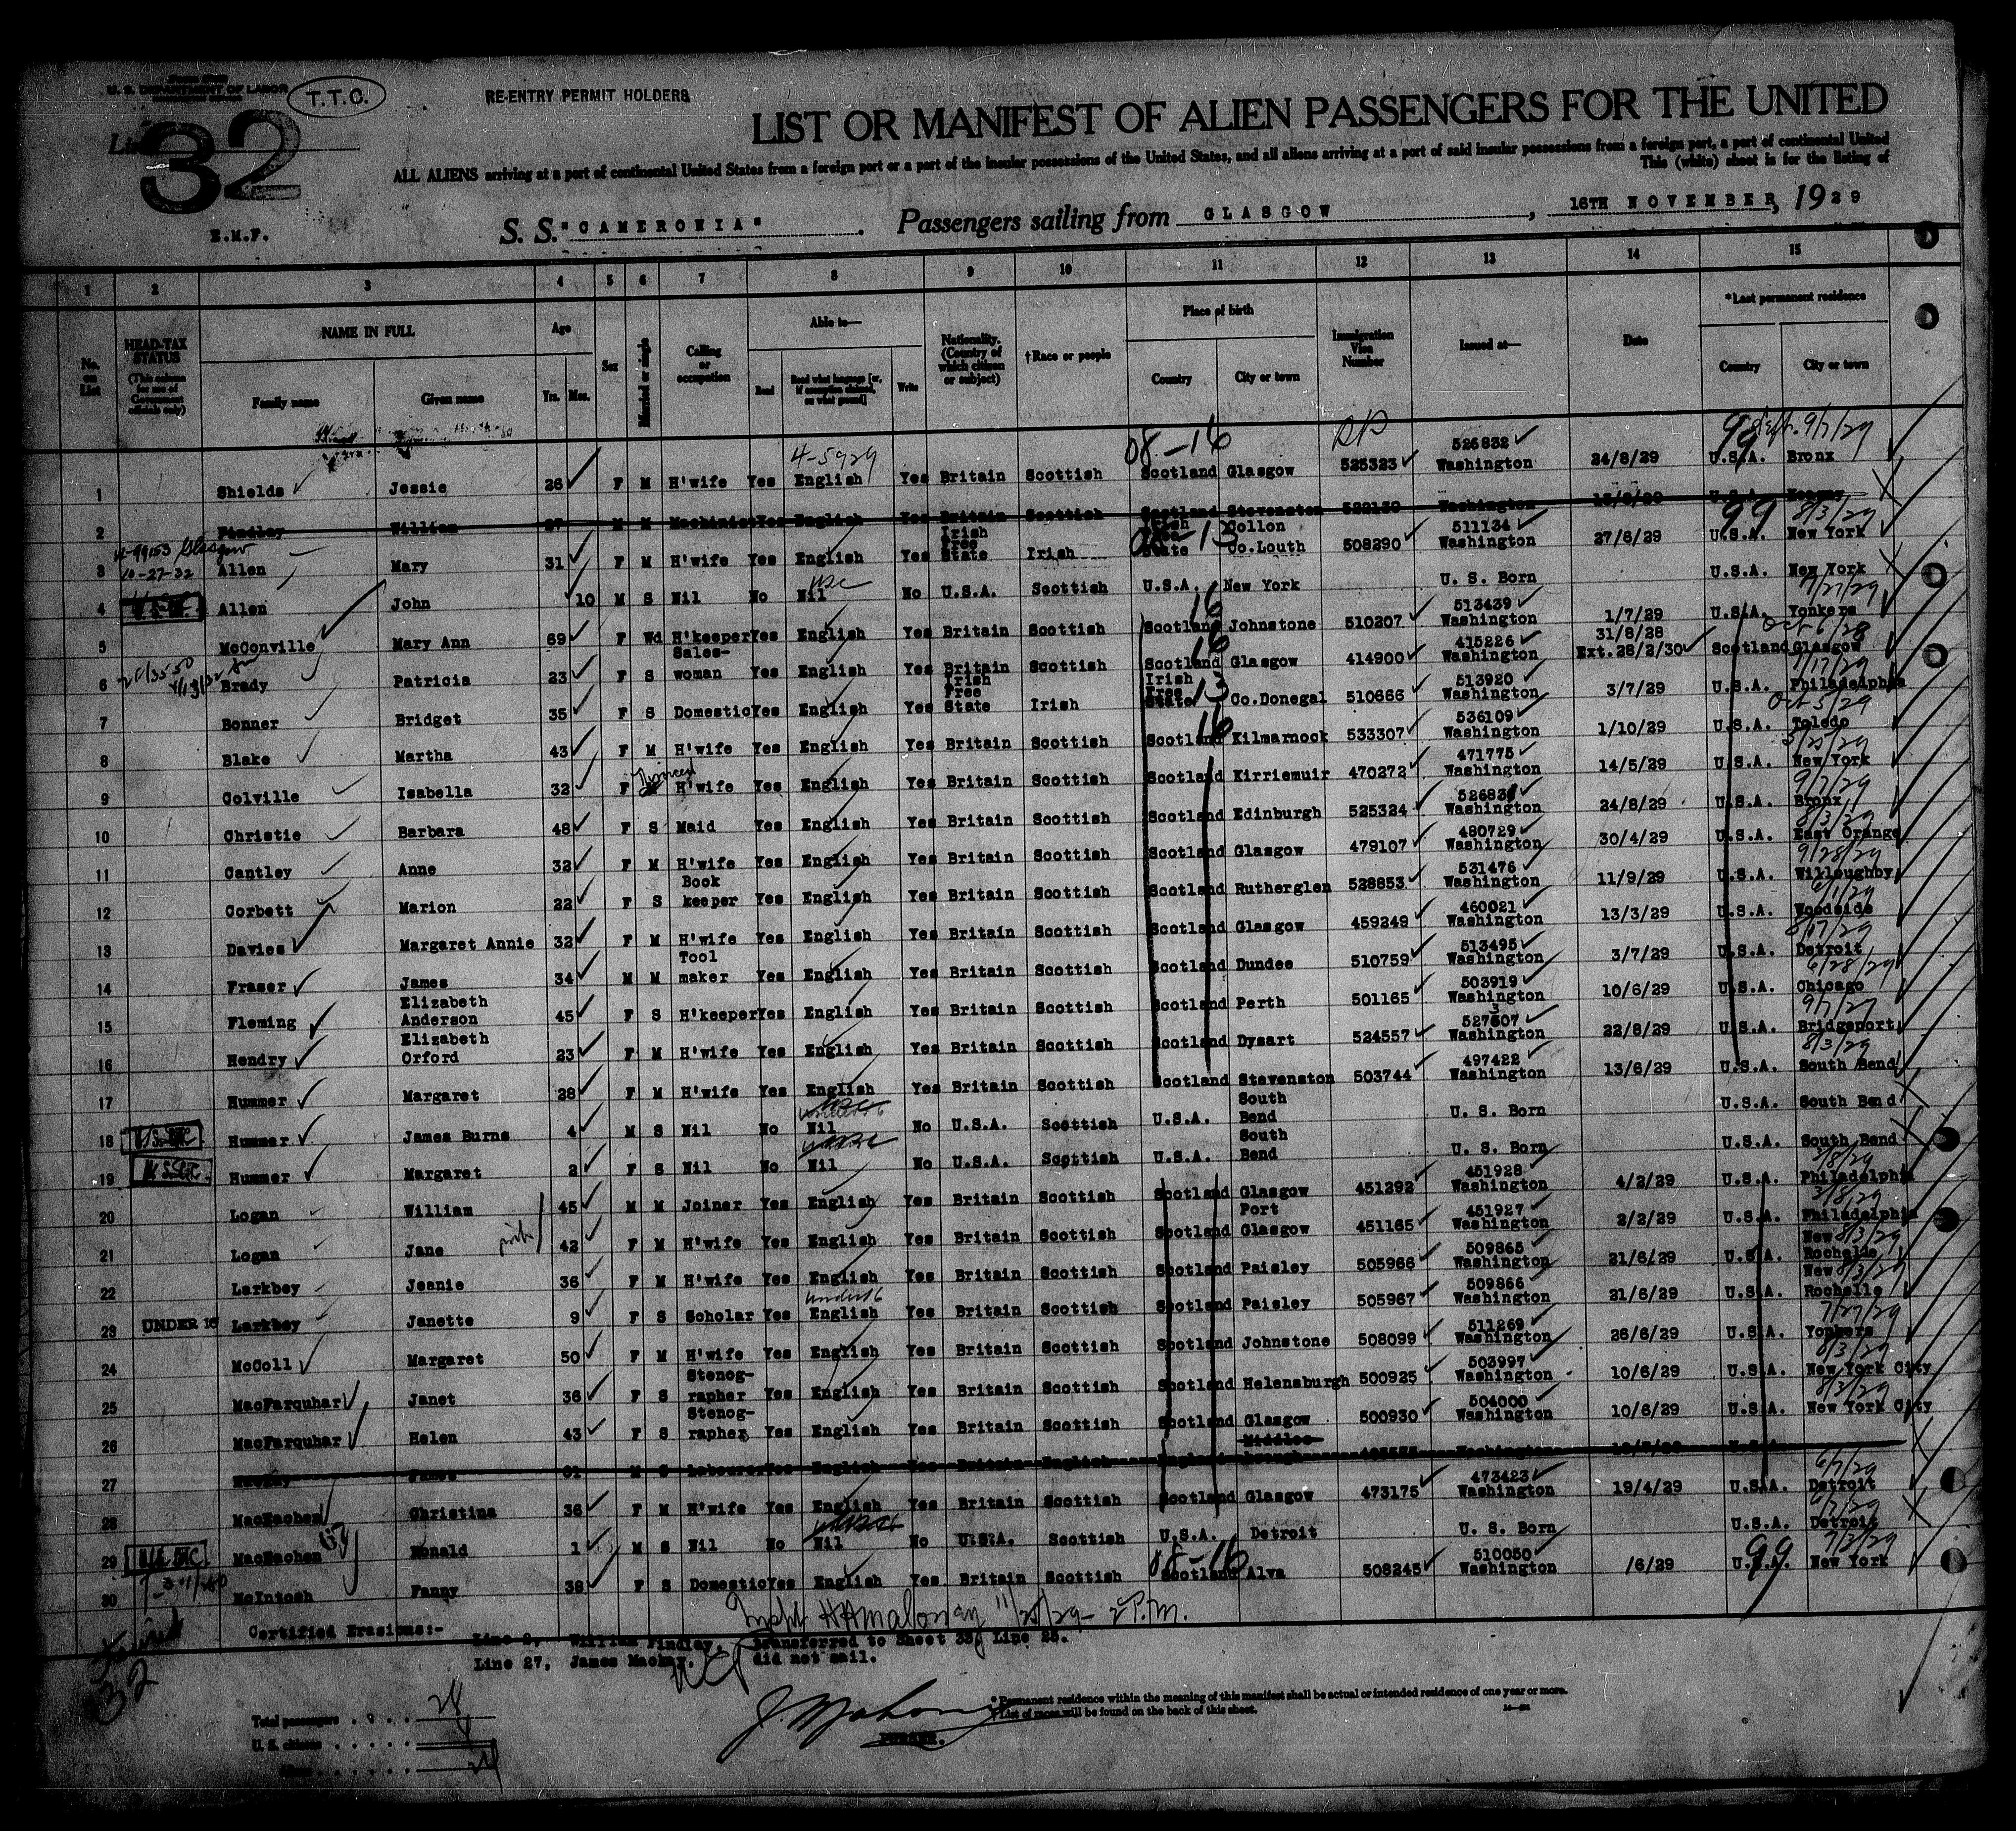 U. S. DEPARTMENT OF LABOR
T.T.O.
RE-ENTRY PERMIT HOLDERS
List 32
E.M.F.
LIST OR MANIFEST OF ALIEN PASSENGERS FOR THE UNITED
ALL ALIENS arriving at a port of continental United States from a foreign port or a port of the insular possessions of the United States, and all aliens arriving at a port of said insular possessions from a foreign port, a port of continental United
This (white) sheet is for the listing of
S. S. "CAMERONIA" Passengers sailing from GLASGOW, 16TH NOVEMBER, 1929
1 2 3 4 5 6 7 8 9 10 11 12 13 14 15
No. on List
HEAD-TAX STATUS (This column for use of Government officials only)
NAME IN FULL
Family name Given name
Age Yrs. Mos.
Sex
Married or single
Calling or occupation
Able to—
Read Read what language [or, if exemption claimed, on what ground] Write
Nationality. (Country of which citizen or subject)
†Race or people
Place of birth
Country City or town
Immigration Visa Number
Issued at—
Date
*Last permanent residence
Country City or town
4-5929 08-16 99 9/7/29
1 Shields Jessie 26 F M H'wife Yes English Yes Britain Scottish Scotland Glasgow 525323 526832 Washington 24/8/29 U.S.A. Bronx
2 Findley William M M Machinist Yes English Yes Britain Scottish Scotland Stevenston 522130 Washington U.S.A. Kearny
99 8/3/29
3 10-27-32 Allen Mary 31 F M H'wife Yes English Yes Irish Free State Irish Irish Free State 13 Collon Co.Louth 508290 511134 Washington 27/6/29 U.S.A. New York
4 Allen John 10 M S Nil No Nil USC No U.S.A. Scottish U.S.A. New York U. S. Born U.S.A. New York
7/27/29
5 McConville Mary Ann 69 F Wd H'keeper Yes English Yes Britain Scottish Scotland 16 Johnstone 510207 513439 Washington 1/7/29 U.S.A. Yonkers
Oct 6/28
6 Brady Patricia 23 F S Sales-woman Yes English Yes Britain Scottish Scotland 16 Glasgow 414900 415226 Washington 31/8/28 Ext.28/2/30 Scotland Glasgow
7/17/29
7 Bonner Bridget 35 F S Domestic Yes English Yes Irish Free State Irish Irish Free State 13 Co.Donegal 510666 513920 Washington 3/7/29 U.S.A. Philadelphia
Oct 5/29
8 Blake Martha 43 F M H'wife Yes English Yes Britain Scottish Scotland 16 Kilmarnock 533307 536109 Washington 1/10/29 U.S.A. Toledo
9 Colville Isabella 32 F Divorced H'wife Yes English Yes Britain Scottish Scotland Kirriemuir 470272 471775 Washington 14/5/29 U.S.A. New York
9/7/29
10 Christie Barbara 48 F S Maid Yes English Yes Britain Scottish Scotland Edinburgh 525324 526831 Washington 24/8/29 U.S.A. Bronx
8/3/29
11 Cantley Anne 32 F M H'wife Yes English Yes Britain Scottish Scotland Glasgow 479107 480729 Washington 30/4/29 U.S.A. East Orange
9/28/29
12 Corbett Marion 22 F S Book keeper Yes English Yes Britain Scottish Scotland Rutherglen 528853 531476 Washington 11/9/29 U.S.A. Willoughby
6/1/29
13 Davies Margaret Annie 32 F M H'wife Yes English Yes Britain Scottish Scotland Glasgow 459249 460021 Washington 13/3/29 U.S.A. Woodside
8/17/29
14 Fraser James 34 M M Tool maker Yes English Yes Britain Scottish Scotland Dundee 510759 513495 Washington 3/7/29 U.S.A. Detroit
6/28/29
15 Fleming Elizabeth Anderson 45 F S H'keeper Yes English Yes Britain Scottish Scotland Perth 501165 503919 Washington 10/6/29 U.S.A. Chicago
9/7/29
16 Hendry Elizabeth Orford 23 F M H'wife Yes English Yes Britain Scottish Scotland Dysart 524557 527607 Washington 22/8/29 U.S.A. Bridgeport
8/3/29
17 Hummer Margaret 28 F M H'wife Yes English Yes Britain Scottish Scotland Stevenston 503744 497422 Washington 13/6/29 U.S.A. South Bend
18 Hummer James Burns 4 M S Nil No Nil No U.S.A. Scottish U.S.A. South Bend U. S. Born U.S.A. South Bend
19 Hummer Margaret 2 F S Nil No Nil No U.S.A. Scottish U.S.A. South Bend U. S. Born U.S.A. South Bend
3/8/29
20 Logan William 45 M M Joiner Yes English Yes Britain Scottish Scotland Glasgow 451292 451928 Washington 4/2/29 U.S.A. Philadelphia
3/8/29
21 Logan Jane wife 42 F M H'wife Yes English Yes Britain Scottish Scotland Port Glasgow 451165 451927 Washington 2/2/29 U.S.A. Philadelphia
8/3/29
22 Larkbey Jeanie 36 F M H'wife Yes English Yes Britain Scottish Scotland Paisley 505966 509865 Washington 21/6/29 U.S.A. New Rochelle
8/3/29
23 UNDER 16 Larkbey Janette 9 F S Scholar Yes under 16 English Yes Britain Scottish Scotland Paisley 505967 509866 Washington 21/6/29 U.S.A. New Rochelle
7/27/29
24 McColl Margaret 50 F M H'wife Yes English Yes Britain Scottish Scotland Johnstone 508099 511269 Washington 26/6/29 U.S.A. Yonkers
8/3/29
25 MacFarquhar Janet 36 F S Stenog-rapher Yes English Yes Britain Scottish Scotland Helensburgh 500925 503997 Washington 10/6/29 U.S.A. New York City
8/3/29
26 MacFarquhar Helen 43 F S Stenog-rapher Yes English Yes Britain Scottish Scotland Glasgow 500930 504000 Washington 10/6/29 U.S.A. New York City
27 James M S Labourer Yes English Yes Britain English England Middles-brough Washington U.S.A.
6/7/29
28 MacEachen Christina 36 F M H'wife Yes English Yes Britain Scottish Scotland Glasgow 473175 473423 Washington 19/4/29 U.S.A. Detroit
29 MacEachen Ronald 1 M S Nil No Nil No U.S.A. Scottish U.S.A. Detroit U. S. Born U.S.A. Detroit
08-16 99
30 McIntosh Fanny 38 F S Domestic Yes English Yes Britain Scottish Scotland Alva 508245 510050 Washington /6/29 U.S.A. New York
11/25/29 - 2 P.M.
Certified Erasions:-
Line 2, William Findley, transferred to Sheet 33, Line 25.
Line 27, James Mackay, did not sail.
32
* Permanent residence within the meaning of this manifest shall be actual or intended residence of one year or more.
† List of races will be found on the back of this sheet.
PURSER.
Total passengers
U. S. citizens